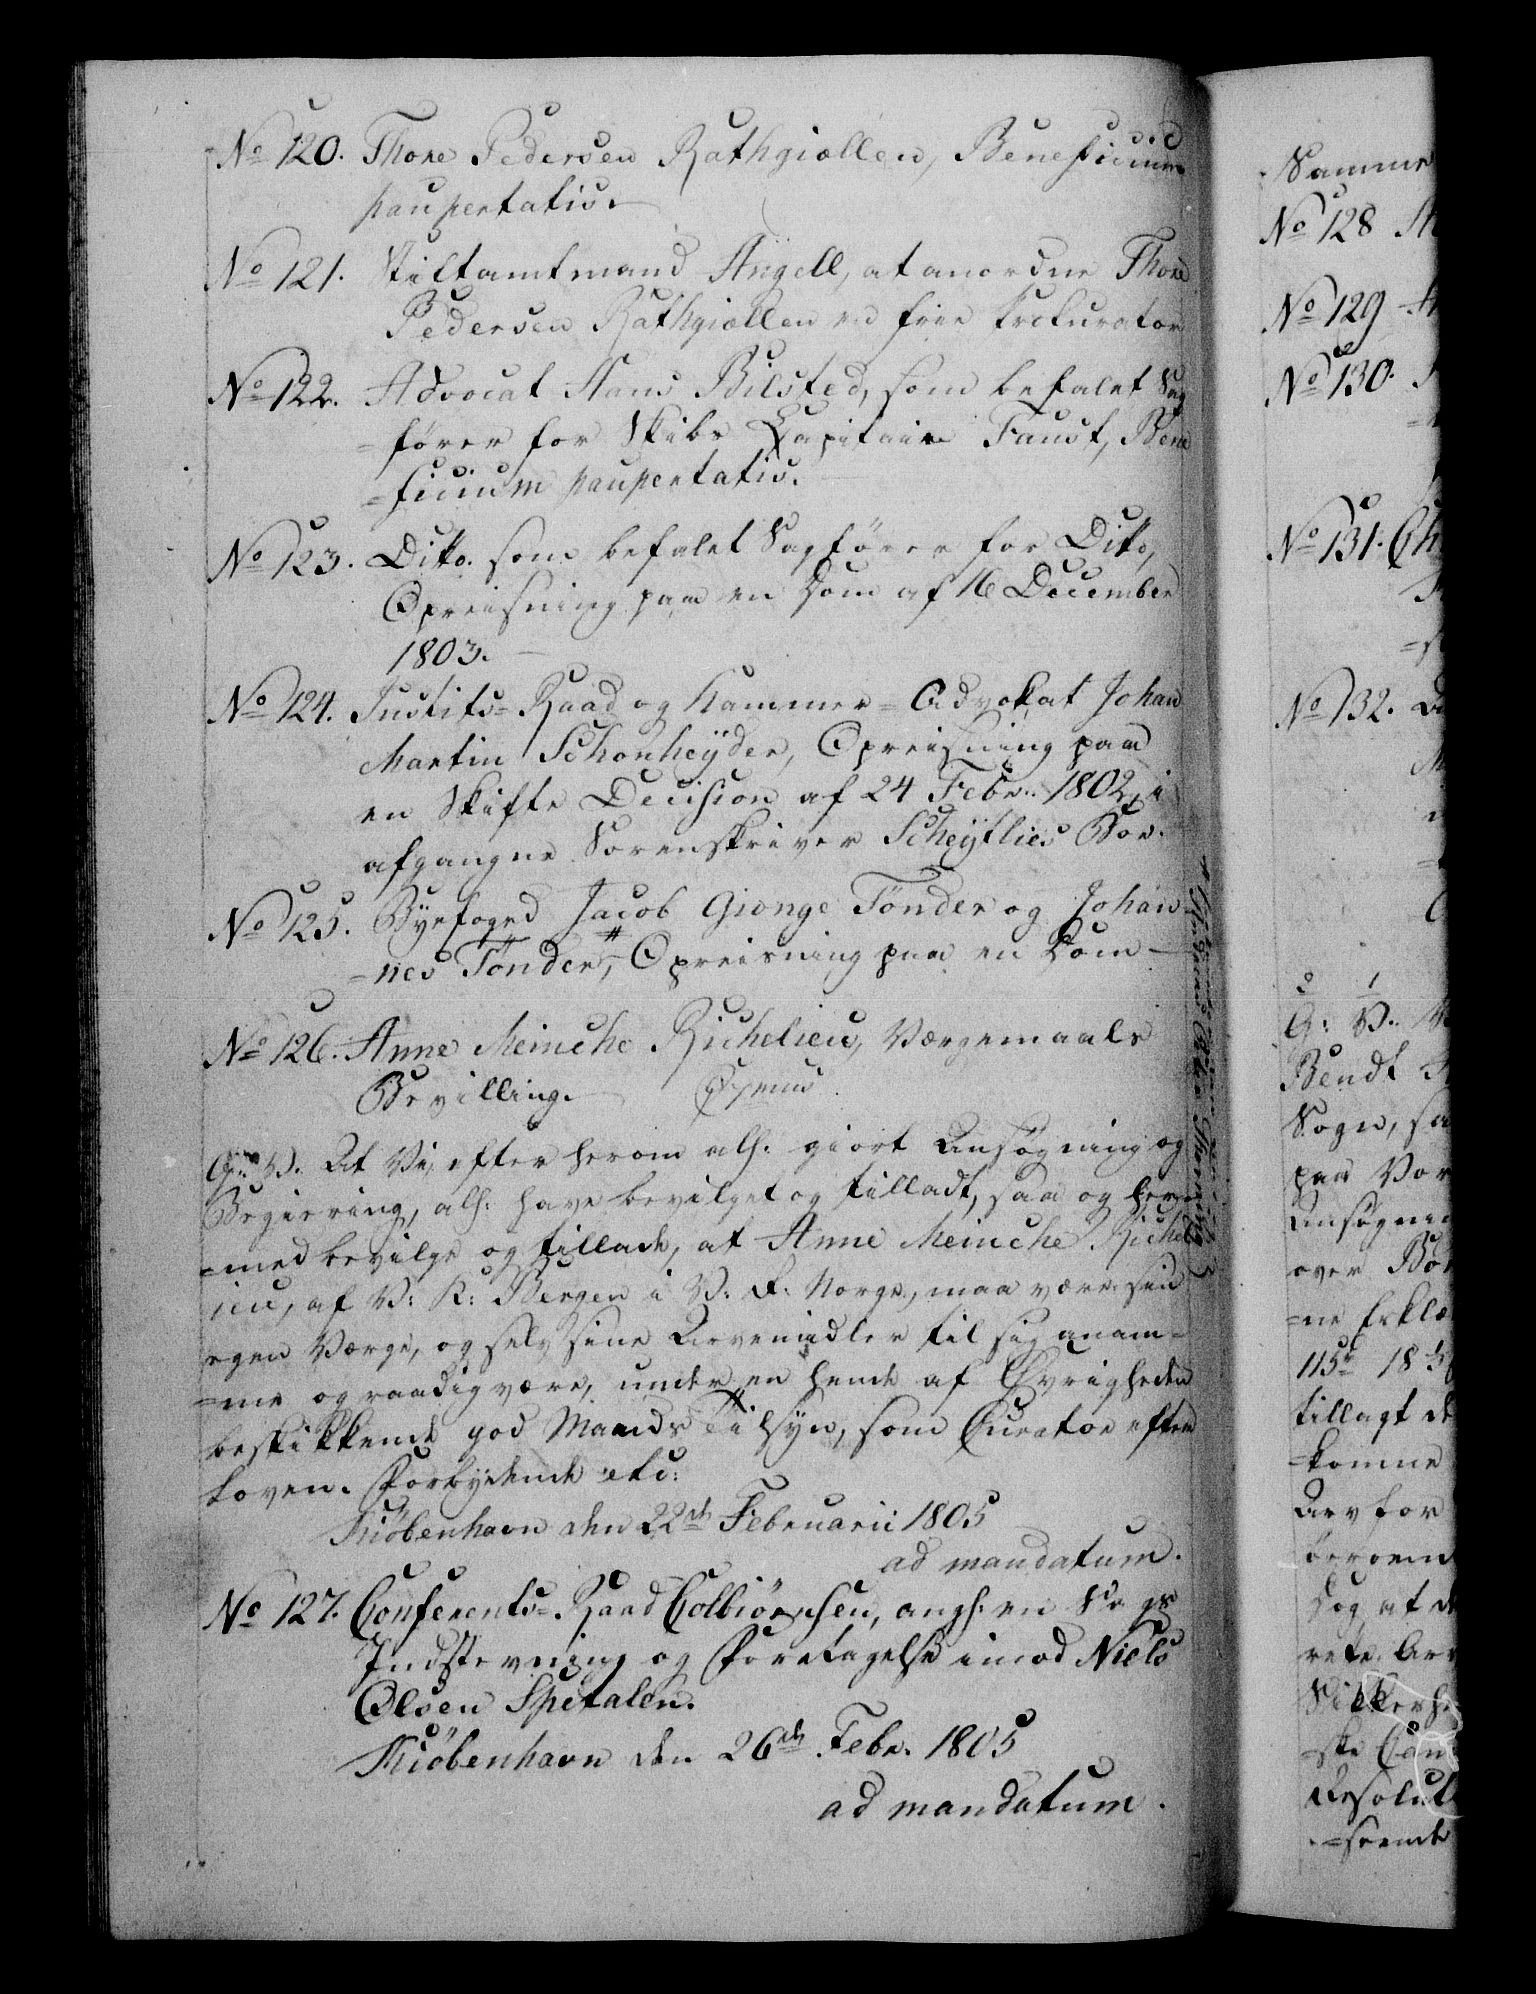 No 120. Thore Pedersen Rathgiællen, Beneficium
paupertatis.
No 121. Stiftamtmand Angell, at anordne Thore
Pedersen Rathgiællen en frie Prokurator
No 122. Advocat Hans Bilsted, som befalet Sag
=fører for Skibs Capitain Faust, Bene
=ficium paupertatis.
No 123. Ditto. som befalet Sagfører for Ditto,
Opreisning paa en Dom af 16 December
1803.
No 124. Justits=Raad og Kammer=Advokat Johan
Martin Schönheÿder, Opreisning paa
en Skifte Decision af 24 Febr: 1802, i
afgangne Sorenskriver Scheÿtlies Boe.
No 125. Byefoged Jacob Gionge Tönder og Johan
=nes Tönder, # Opreisning paa en Dom
No 126. Anne Meinche Richelieu, Værgemaals
Bevilling.
G: V. At Vi, efter herom allh: giort Ansøgning og
Begiering, allh: have bevilget og tilladt, saa og her
=med bevilge og tillade, at Anne Meinche Richel
ieu, af V: K: Bergen i V: R: Norge, maa være sin
egen Værge, og selv sine Arvemidler til sig anam=
=me og raadig være, under en hende af Øvrigheden
beskikkende god Mands Tilsÿn, som Curator efter
Loven. Forbydende etc:
Kiöbenhavn den 22de Februarii 1805
ad mandatum.
No 127. Conferents=Raad Colbiörnsen, angh: en Sags
Indstevning og Foretagelse imod Niels
Olsen Spetalen.
Kiöbenhavn den 26de Febr. 1805
ad mandatum.
Samme
No 128
No 129
No 130.
No 131. Ch
No 132.
G: V:
Bendt
Sogn, sa
paa Vor
Ansøgnin
over Bo
=ne Erklæ
tillagt de
=komme
Arv for
Dog at de
Sikkerhe
=ske Can
Resolut